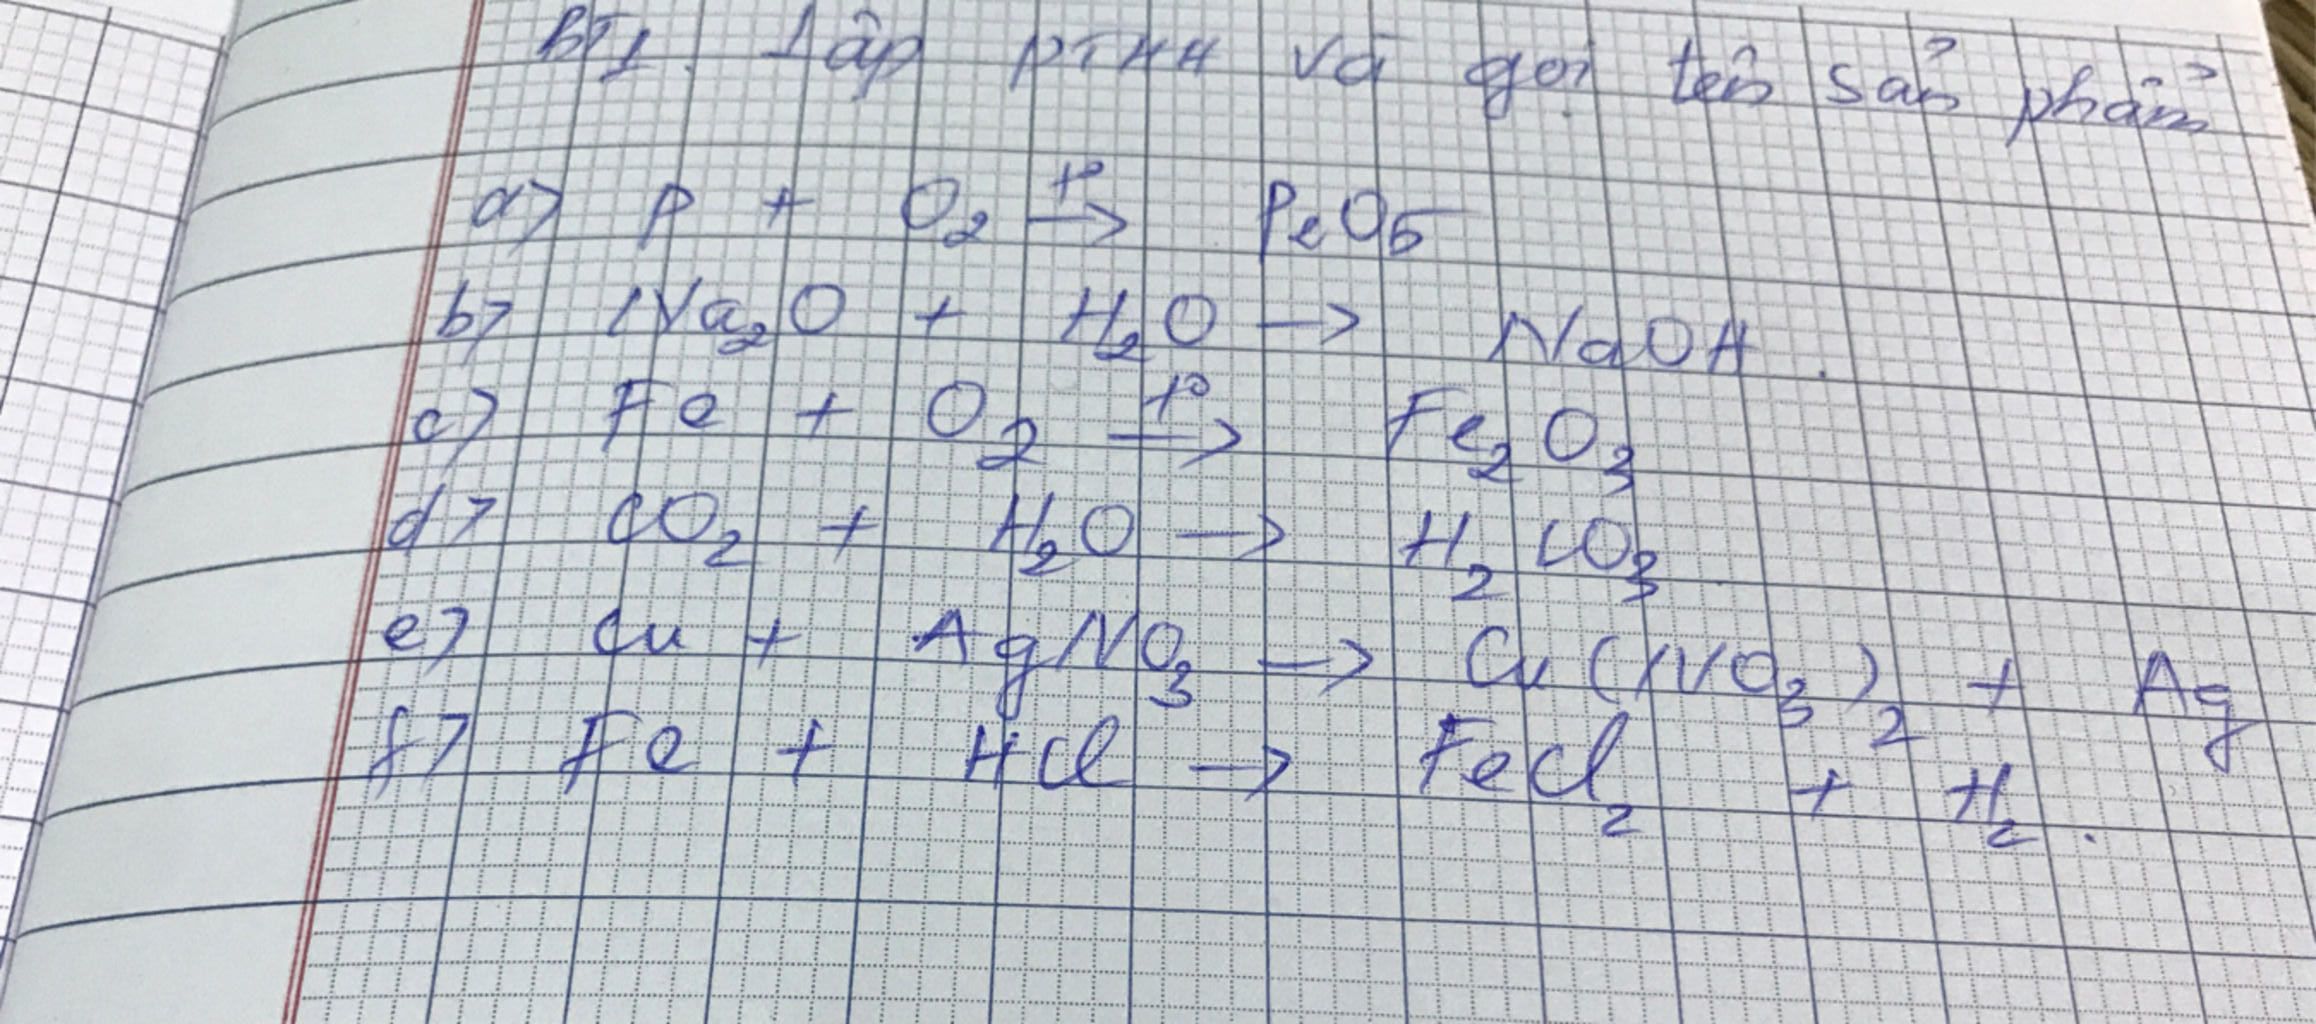 BT1. Lập PTHH và gọi tên sản phẩm
a) P + O₂ t°→ P₂O₅
b) Na₂O + H₂O → NaOH.
c) Fe + O₂ t°→ Fe₂O₃
d) CO₂ + H₂O → H₂CO₃
e) Cu + AgNO₃ → Cu(NO₃)₂ + Ag
f) Fe + HCl → FeCl₂ + H₂.